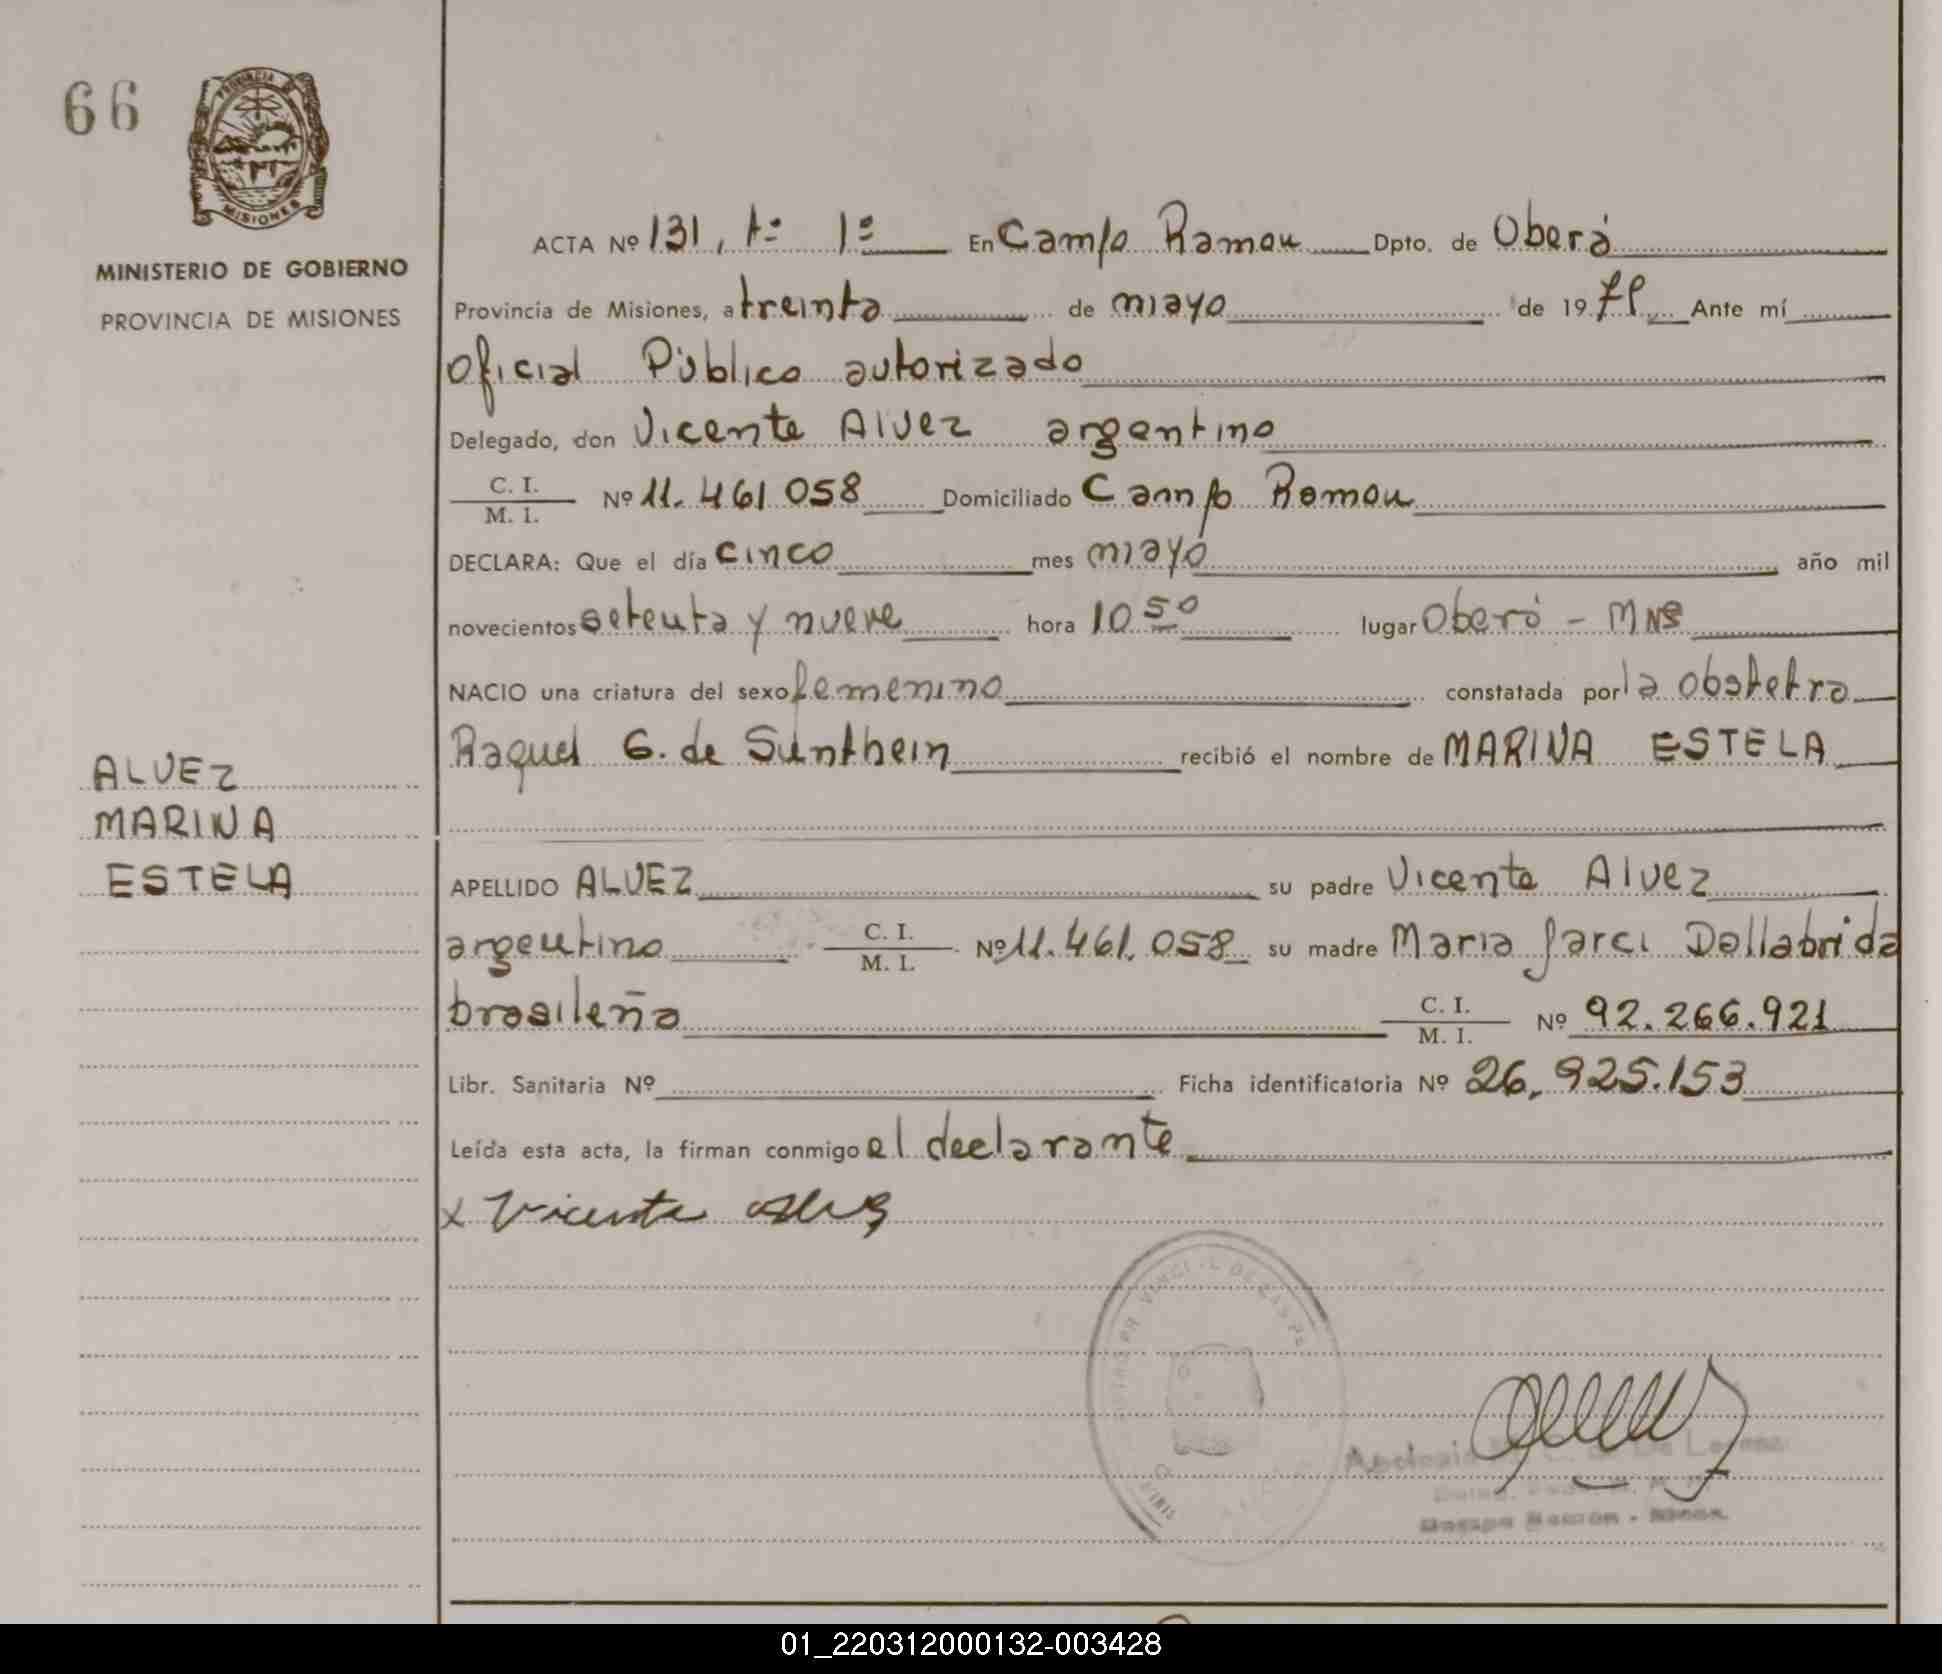 66
PROVINCIA DE
MISIONES
MINISTERIO DE GOBIERNO
PROVINCIA DE MISIONES
ALVEZ
MARINA
ESTELA
ACTA Nº 131, tº 1º En Campo Ramon Dpto. de Oberá
Provincia de Misiones, a treinta de mayo de 1979 Ante mí
Oficial Público autorizado
Delegado, don Vicente Alvez argentino
C. I.
M. I.
Nº 11.461 058 Domiciliado Campo Ramon
DECLARA: Que el día cinco mes mayo año mil
novecientos setenta y nueve hora 10 50 lugar Oberá - Mnes
NACIO una criatura del sexo femenino constatada por la obstetra
Raquel G. de Sunthein recibió el nombre de MARINA ESTELA
APELLIDO ALVEZ su padre Vicente Alvez
argentino C. I.
M. I.
Nº 11.461.058 su madre Maria Jarci Dallabrida
brasileña C. I.
M. I.
Nº 92.266.921
Libr. Sanitaria Nº Ficha identificatoria Nº 26.925.153
Leída esta acta, la firman conmigo el declarante
x Vicente Alvez
01_220312000132-003428